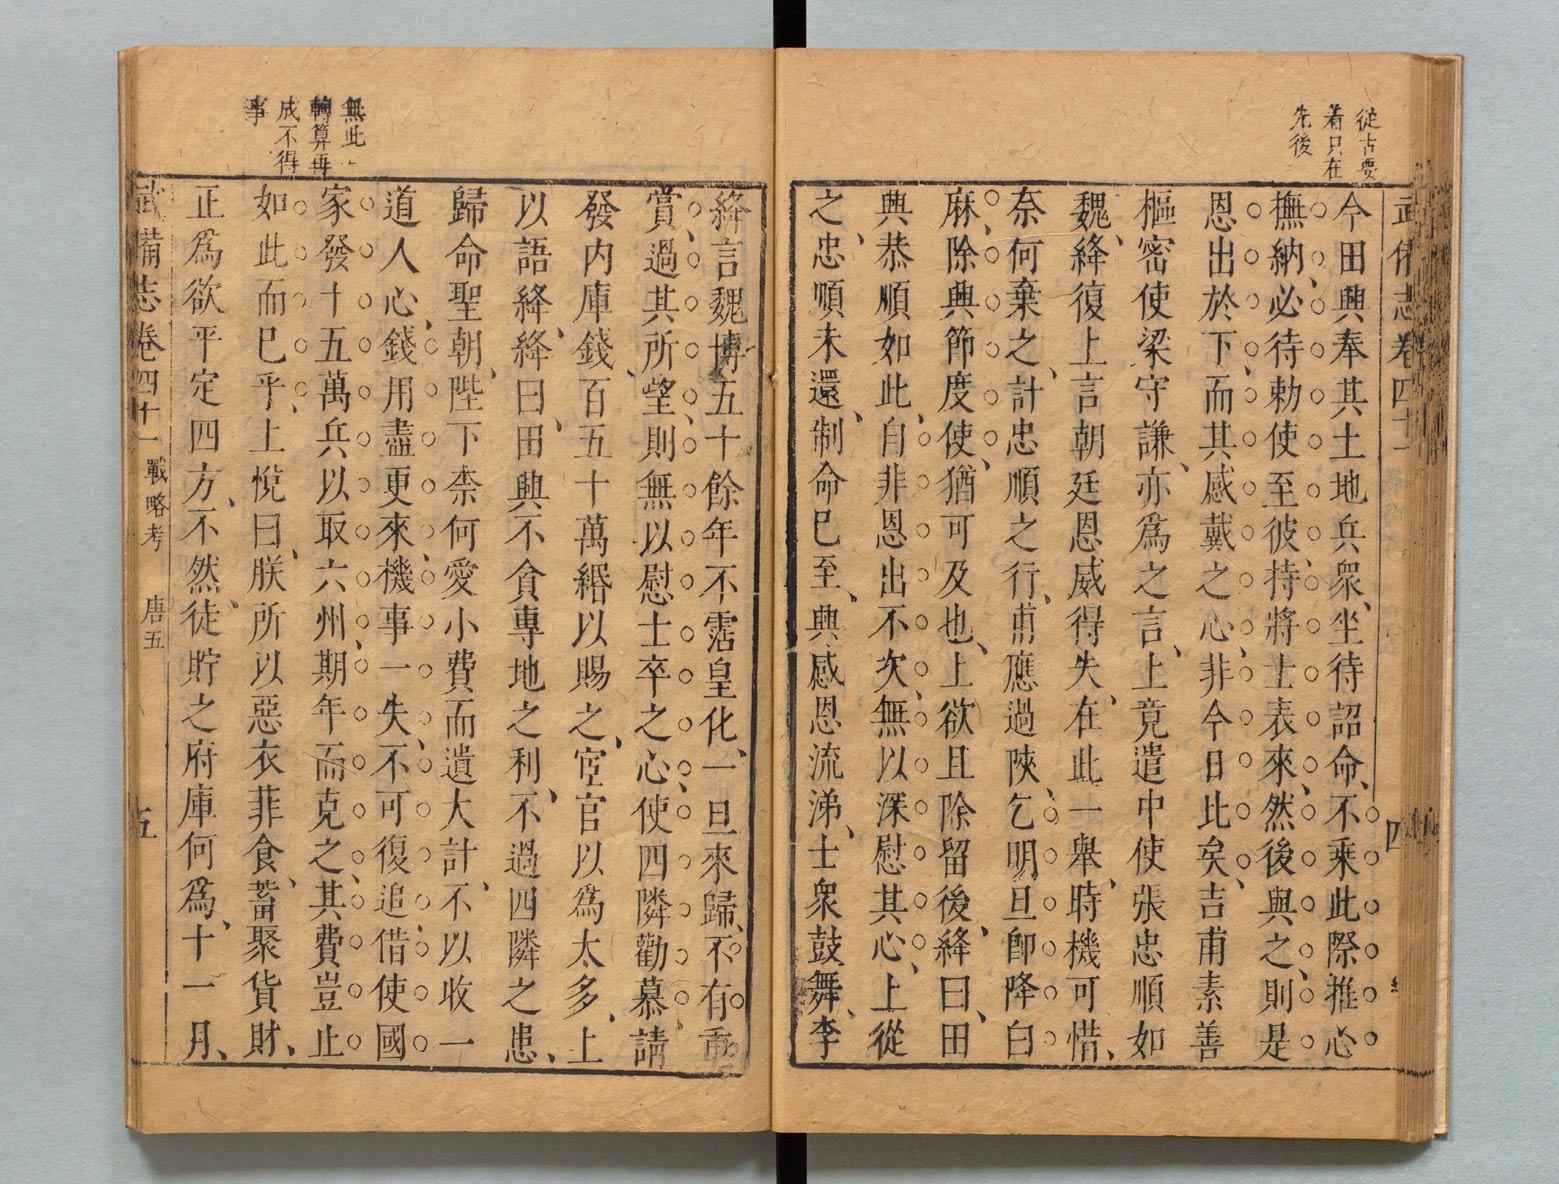 從古要
着只在
先後
武備志卷四十一
四
今田興奉其土地兵衆、坐待詔命、不乘此際推心
撫納、必待勅使至彼、持將士表來、然後與之、則是
恩出於下、而其感戴之心、非今日比矣、吉甫素善
樞密使梁守謙、亦爲之言、上竟遣中使張忠順如
魏、絳復上言朝廷恩威得失、在此一舉、時機可惜、
奈何棄之、計忠順之行、甫應過陝、乞明旦卽降白
麻、除興節度使、猶可及也、上欲且除留後、絳曰、田
興恭順如此、自非恩出不次、無以深慰其心、上從
之、忠順未還、制命已至、興感恩流涕、士衆鼓舞、李
無此一
轉算再
成不得
事
絳言魏博五十餘年不霑皇化、一旦來歸、不有重
賞、過其所望、則無以慰士卒之心、使四隣勸慕、請
發内庫錢、百五十萬緡以賜之、宦官以爲太多、上
以語絳、絳曰、田興不貪專地之利、不過四隣之患、
歸命聖朝、陛下柰何愛小費而遺大計、不以收一
道人心、錢用盡更來、機事一失、不可復追、借使國
家發十五萬兵以取六州、期年而克之、其費豈止
如此而已乎、上悅曰、朕所以惡衣菲食、蓄聚貨財、
正爲欲平定四方、不然、徒貯之府庫何爲、十一月、
武備志卷四十一 戰略考 唐五
五